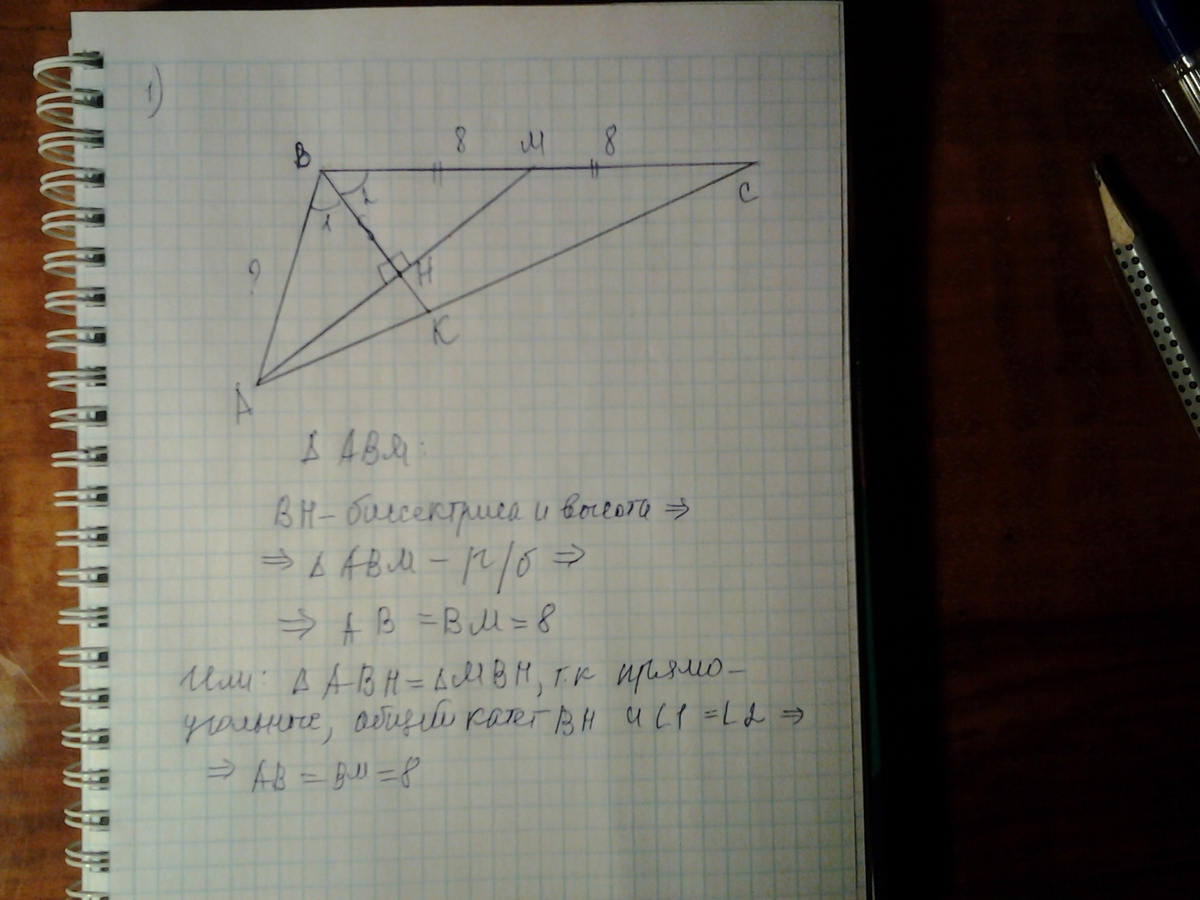 1)
8 M 8
B
C
2
1
?
H
K
A
Δ ABM:
BH – биссектриса и высота ⇒
⇒ Δ ABM – р/б ⇒
⇒ AB = BM = 8
Или: Δ ABH = Δ MBH, т.к прямо-
угольные, общий катет BH и ∠1 = ∠2 ⇒
⇒ AB = BM = 8